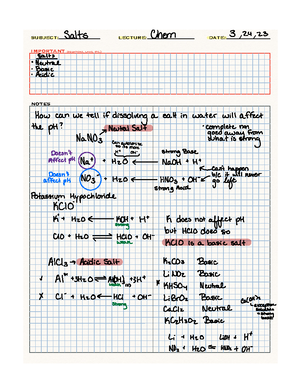 SUBJECT: Salts LECTURE: Chem DATE: 3,24,23
IMPORTANT
Salts
• Neutral
• Basic
• Acidic
NOTES
How can we tell if dissolving a salt in water will affect
the pH?
NaNO₃ Neutral Salt
• complete non
good away from
what is strong
Doesn't
affect pH
Na⁺ + H₂O ← NaOH + H⁺
Strong Base
Doesn't
affect pH
NO₃⁻ + H₂O ← HNO₃ + OH⁻
Strong Acid
can't happen
b/c it will never
go left
Potassium Hypochloride
KClO
K⁺ + H₂O ← KOH + H⁺
strong
ClO + H₂O ⇌ HClO + OH⁻
weak
K does not affect pH
but HClO does so
KClO is a basic salt
AlCl₃ → Acidic Salt
✓ Al³⁺ + 3H₂O
X Cl⁻ + H₂O ← HCl + OH⁻
strong
K₂CO₃ Basic
LiNO₂ Basic
KHSO₄ Neutral
LiBrO₂ Basic
CaCl₂ Neutral
KC₂H₃O₂ Basic
Li + H₂O LiOH + H⁺
NO₂ + H₂O = HNO₂ + OH⁻